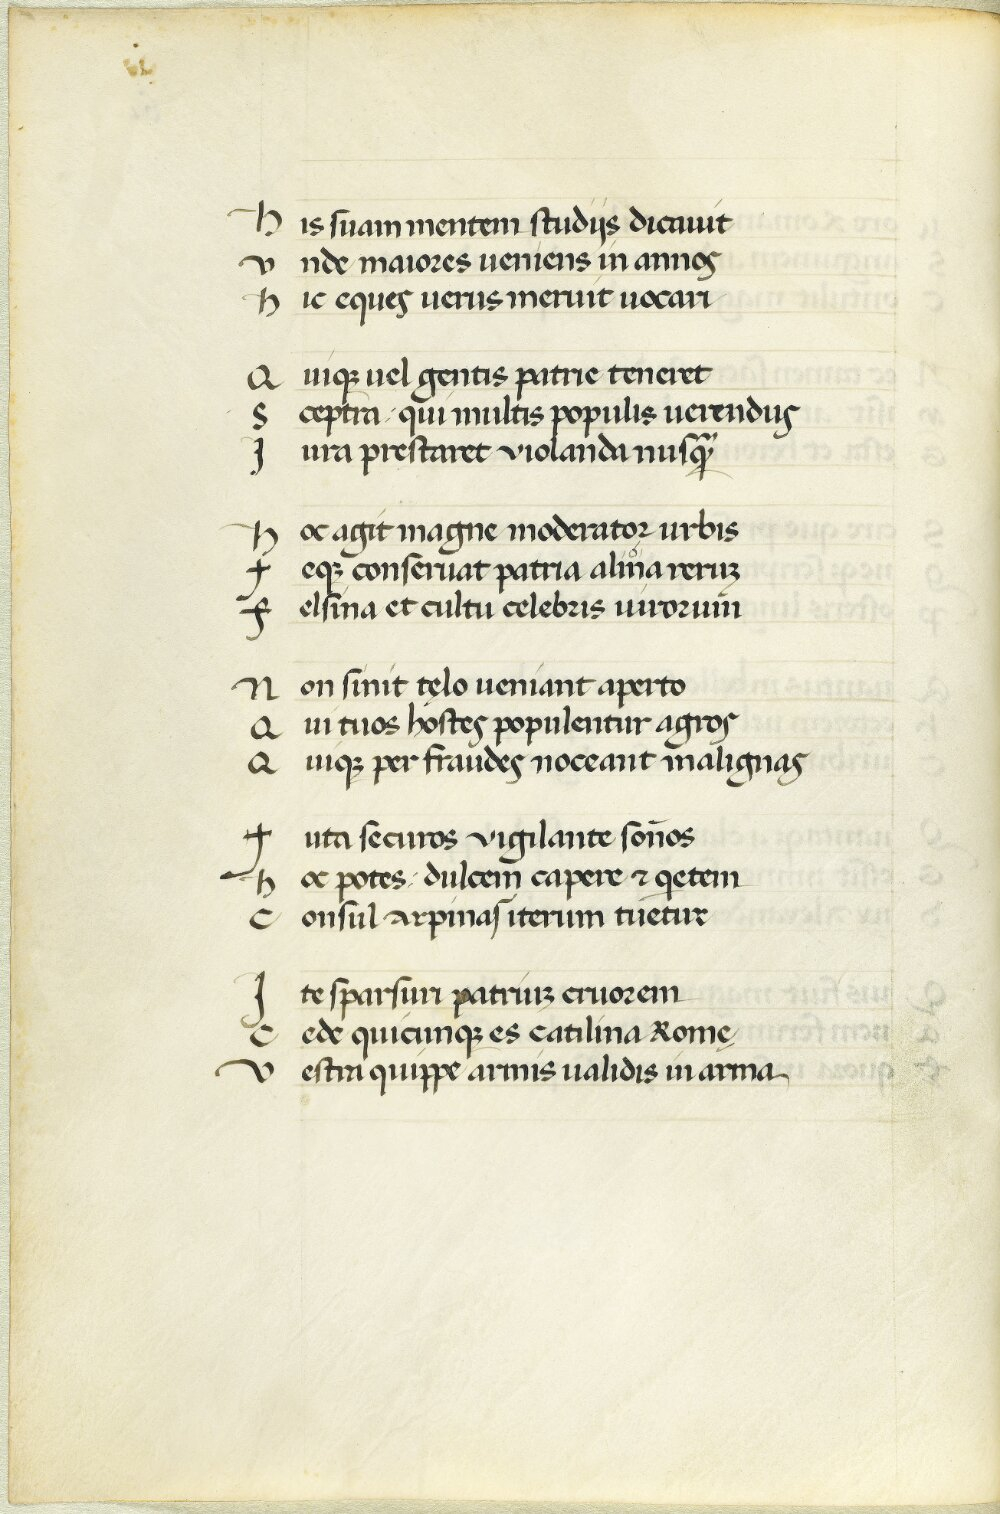 His suam mentem studijs dicauit
Vnde maiores ueniens in annos
Hic eques uerus meruit uocari
Quiqꝫ uel gentis patrie teneret
Sceptra · qui multis populis uerendus
Jura prestaret violanda nusqꝫ̃
Hoc agit magne moderator urbis
Teqꝫ conseruat patria alma reruꝫ
Felsina et cultu celebris uirorum
Non sinit telo ueniant aperto
Qui tuos hostes populentur agros
Quiqꝫ per fraudes noceant malignas
Tuta securos vigilante som̄os
Hoc potes · dulcem capere ⁊ qͥetem
Consul Arpinas iterum tuetur
Jte sparsuri patriuꝫ cruorem
Cede quicunqꝫ es Catilina Rome
Vestra quippe armis ualidis in arma